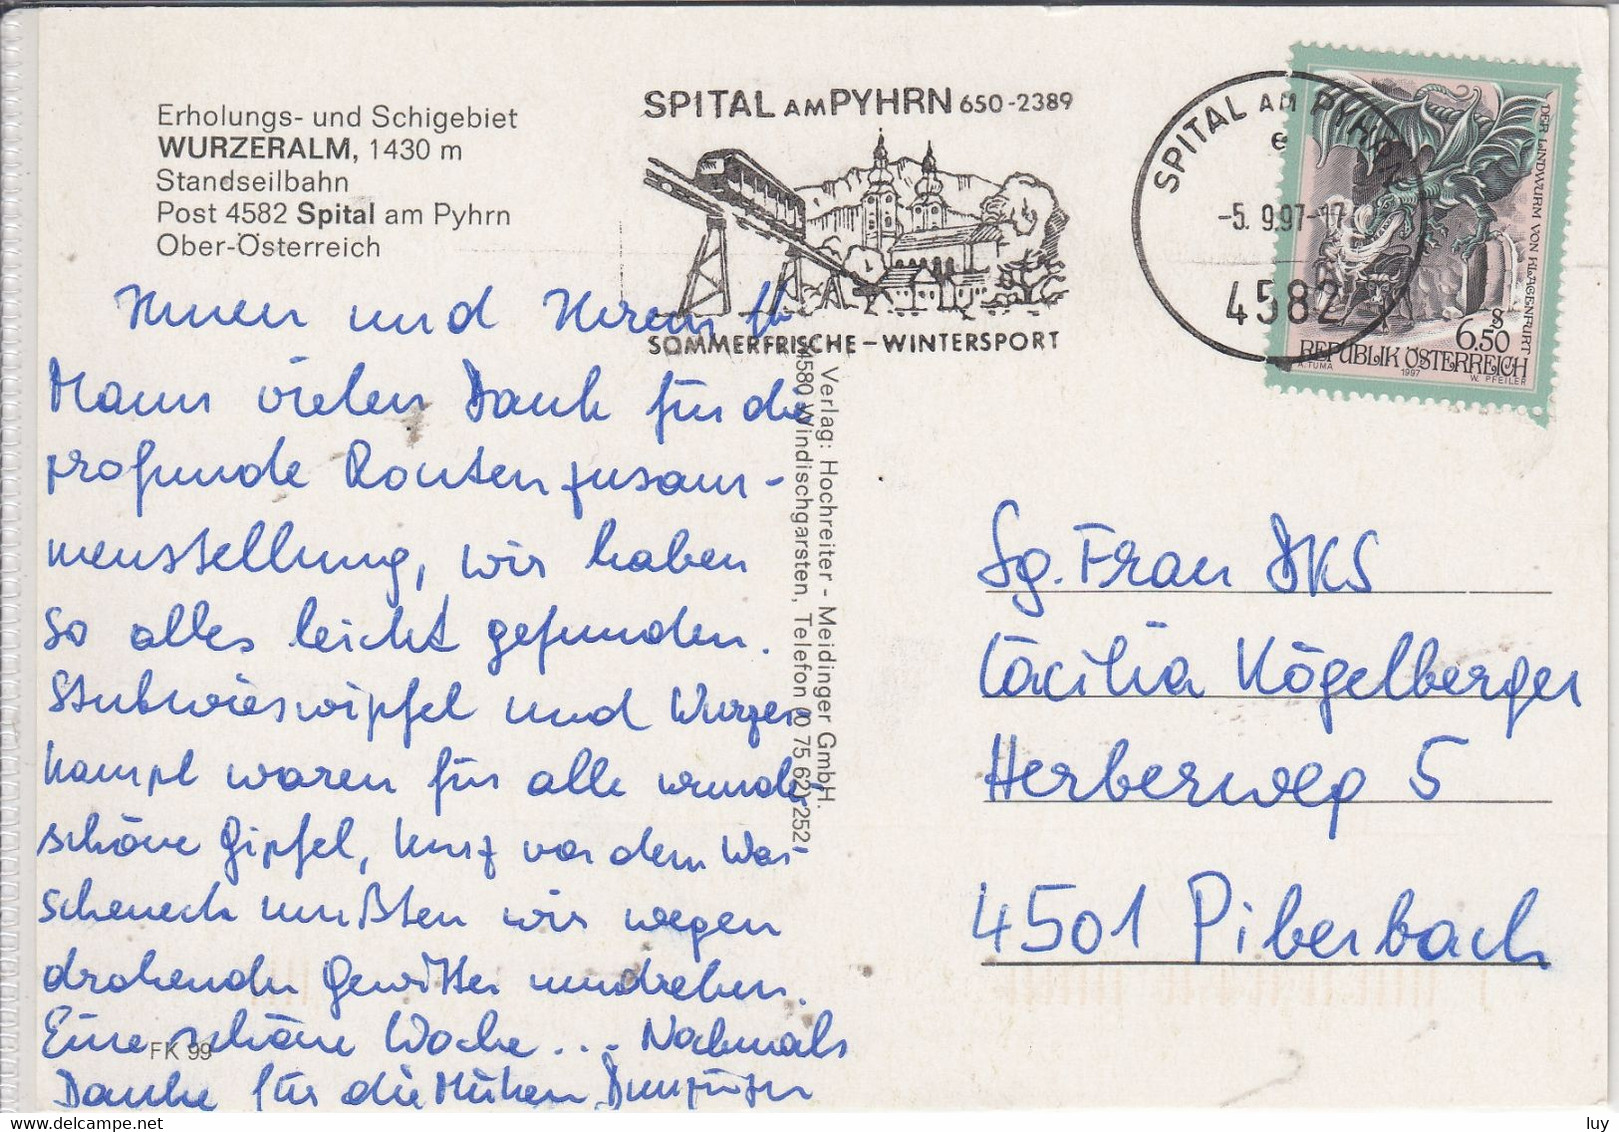 Erholungs- und Schigebiet
WURZERALM, 1430 m
Standseilbahn
Post 4582 Spital am Pyhrn
Ober-Österreich
SPITAL AM PYHRN 650-2389
SOMMERFRISCHE – WINTERSPORT
SPITAL AM PYHRN
e
-5. 9.97-17
4582
DER LINDWURM VON KLAGENFURT
S
6.50
REPUBLIK ÖSTERREICH
A. TUMA 1997 W. PFEILER
Ihnen und Ihrem
Mann vielen Dank für die
profunde Routenzusam-
menstellung, wir haben
so alles leicht gefunden.
Stubwieswipfel und Wurzer
kampl waren für alle wunder
schöne Gipfel, kurz vor dem War-
scheneck mußten wir wegen
drohender Gewitter umdrehen.
Eine schöne Woche ... Nochmals
Danke für die Mühen
FK 99
Verlag: Hochreiter - Meidinger GmbH.
4580 Windischgarsten, Telefon (0 75 62) 252
Sg. Frau DKS
Cäcilia Kögelberger
Herberweg 5
4501 Piberbach
luy